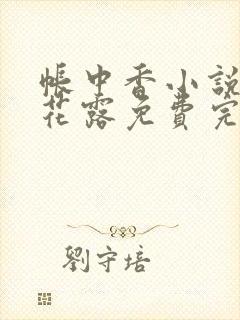 帳中香小說
花露免費完
劉守培